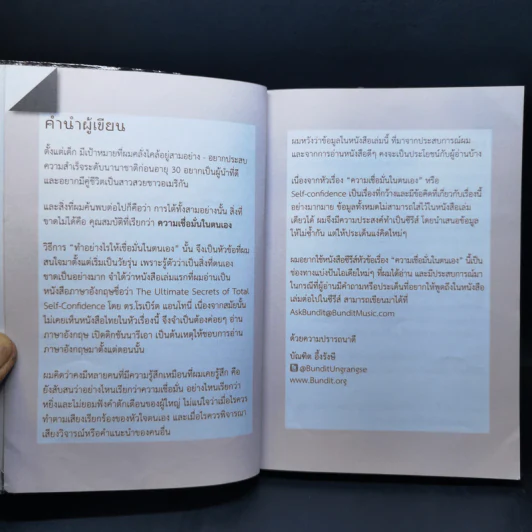 คำนำผู้เขียน
ตั้งแต่เด็ก มีเป้าหมายที่ผมคลั่งไคล้อยู่สามอย่าง - อยากประสบ
ความสำเร็จระดับนานาชาติก่อนอายุ 30 อยากเป็นผู้นำที่ดี
และอยากมีคู่ชีวิตเป็นสาวสวยชาวอเมริกัน
และสิ่งที่ผมค้นพบต่อไปก็คือว่า การได้ทั้งสามอย่างนั้น สิ่งที่
ขาดไม่ได้คือ คุณสมบัติที่เรียกว่า ความเชื่อมั่นในตนเอง
วิธีการ "ทำอย่างไรให้เชื่อมั่นในตนเอง" นั้น จึงเป็นหัวข้อที่ผม
สนใจมาตั้งแต่เริ่มเป็นวัยรุ่น เพราะรู้ตัวว่าเป็นสิ่งที่ตนเอง
ขาดเป็นอย่างมาก จำได้ว่าหนังสือเล่มแรกที่ผมอ่านเป็น
หนังสือภาษาอังกฤษชื่อว่า The Ultimate Secrets of Total
Self-Confidence โดย ดร.โรเบิร์ต แอนโทนี่ เนื่องจากสมัยนั้น
ไม่เคยเห็นหนังสือไทยในหัวเรื่องนี้ จึงจำเป็นต้องค่อยๆ อ่าน
ภาษาอังกฤษ เปิดดิกชันนารีเอา เป็นต้นเหตุให้ชอบการอ่าน
ภาษาอังกฤษมาตั้งแต่ตอนนั้น
ผมคิดว่าคงมีหลายคนที่มีความรู้สึกเหมือนที่ผมเคยรู้สึก คือ
ยังสับสนว่าอย่างไหนเรียกว่าความเชื่อมั่น อย่างไหนเรียกว่า
หยิ่งและไม่ยอมฟังคำตักเตือนของผู้ใหญ่ ไม่แน่ใจว่าเมื่อไรควร
ทำตามเสียงเรียกร้องของหัวใจตนเอง และเมื่อไรควรพิจารณา
เสียงวิจารณ์หรือคำแนะนำของคนอื่น
ผมหวังว่าข้อมูลในหนังสือเล่มนี้ ที่มาจากประสบการณ์ผม
และจากการอ่านหนังสือดีๆ คงจะเป็นประโยชน์กับผู้อ่านบ้าง
เนื่องจากหัวเรื่อง "ความเชื่อมั่นในตนเอง" หรือ
Self-confidence เป็นเรื่องที่กว้างและมีข้อคิดที่เกี่ยวกับเรื่องนี้
อย่างมากมาย ข้อมูลทั้งหมดไม่สามารถใส่ไว้ในหนังสือเล่ม
เดียวได้ ผมจึงมีความประสงค์ทำเป็นซีรีส์ โดยนำเสนอข้อมูล
ให้ไม่ซ้ำกัน แต่ให้ประเด็นแง่คิดใหม่ๆ
ผมอยากใช้หนังสือซีรีส์หัวข้อเรื่อง "ความเชื่อมั่นในตนเอง" นี้เป็น
ช่องทางแบ่งปันไอเดียใหม่ๆ ที่ผมได้อ่าน และมีประสบการณ์มา
ในกรณีที่ผู้อ่านมีคำถามหรือประเด็นที่อยากให้พูดถึงในหนังสือ
เล่มต่อไปในซีรีส์ สามารถเขียนมาได้ที่
AskBundit@BunditMusic.com
ด้วยความปรารถนาดี
บัณฑิต อึ้งรังษี
@BunditUngrangsee
www.Bundit.org